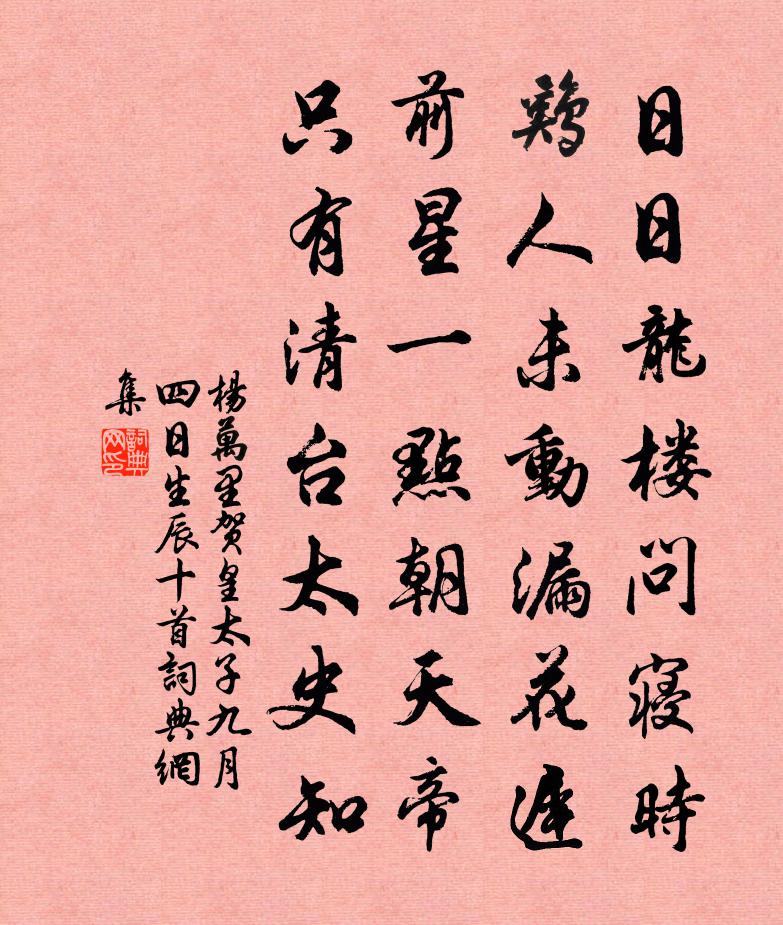 日日龍楼問寝時
鷄人未動漏花遲
前星一點朝天帝
只有清台太史知
楊萬里贺皇太子九月
四日生辰十首詞典網
集
詞典
网印